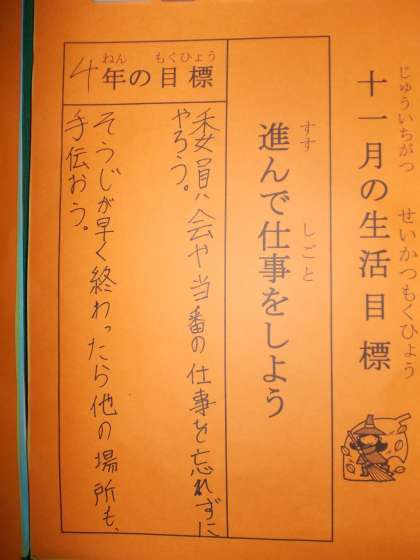 じゅういちがつ せいかつもくひょう
十一月の生活目標
すす しごと
進んで仕事をしよう
ねん もくひょう
4年の目標
委員会や当番の仕事を忘れずに
やろう。
そうじが早く終わったら他の場所も、
手伝おう。